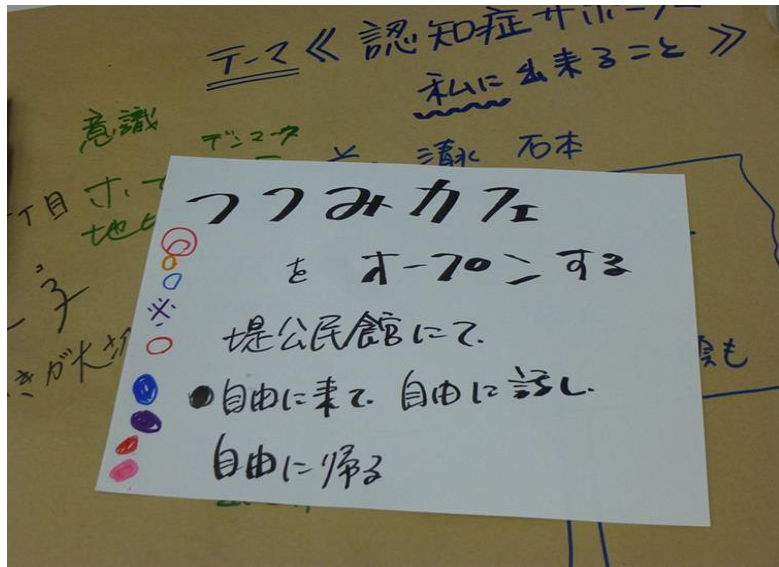 テーマ《認知症サポーター
私に出来ること》
意識
デンマーク
清水 石本
丁目
つつみカフェ
を オープンする
※
堤公民館にて.
●自由に来て. 自由に話し.
自由に帰る